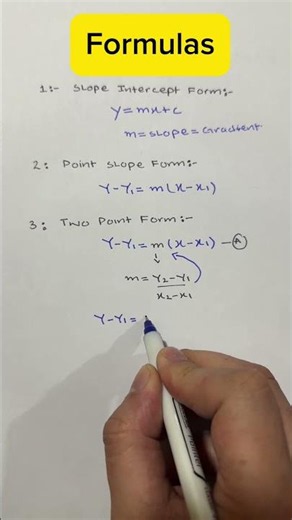 Formulas
1:- Slope Intercept Form:-
y=mx+c
m=slope=Gradient
2: Point Slope Form:-
Y-Y₁=m(x-x₁)
3: Two Point Form:-
Y-Y₁=m(x-x₁)—Ⓐ
m=Y₂-Y₁
x₂-x₁
Y-Y₁=